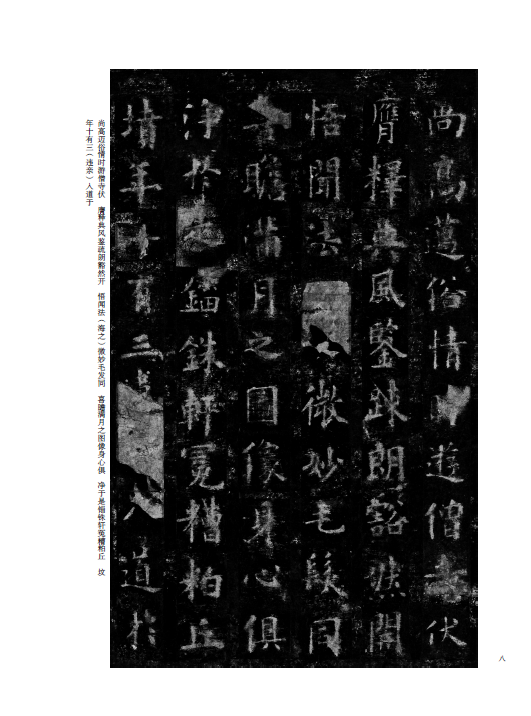 尚高邁俗情時遊僧寺伏
膺釋典風鑒疎朗豁然開
悟聞法微妙毛髮同
喜瞻滿月之圖像身心俱
淨於是錙銖軒冕糟粕丘
墳年十有三違人道於
尚高迈俗情时游僧寺伏 膺释典风鉴疏朗豁然开 悟闻法（海之）微妙毛发同 喜瞻满月之图像身心俱 净于是锱铢轩冕糟粕丘 坟
年十有三（违亲）人道于
八